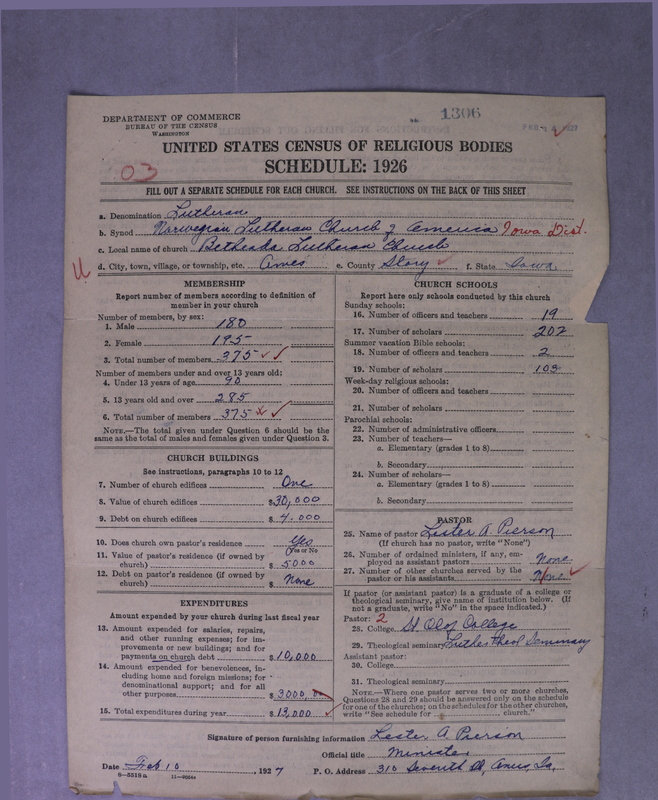 DEPARTMENT OF COMMERCE
BUREAU OF THE CENSUS
WASHINGTON
1306
UNITED STATES CENSUS OF RELIGIOUS BODIES
SCHEDULE: 1926
03
FILL OUT A SEPARATE SCHEDULE FOR EACH CHURCH. SEE INSTRUCTIONS ON THE BACK OF THIS SHEET
a. Denomination Lutheran
b. Synod Norwegian Lutheran Church of America Iowa Dist.
c. Local name of church Bethesda Lutheran Church
d. City, town, village, or township, etc. Ames e. County Story f. State Iowa
MEMBERSHIP
Report number of members according to definition of member in your church
Number of members, by sex:
1. Male 180
2. Female 195
3. Total number of members 375
Number of members under and over 13 years old:
4. Under 13 years of age 90
5. 13 years old and over 285
6. Total number of members 375
NOTE.—The total given under Question 6 should be the
same as the total of males and females given under Question 3.
CHURCH BUILDINGS
See instructions, paragraphs 10 to 12
7. Number of church edifices One
8. Value of church edifices $30,000
9. Debt on church edifices $ 4.000
10. Does church own pastor's residence Yes
(Yes or No)
11. Value of pastor's residence (if owned by
church) $ 5000
12. Debt on pastor's residence (if owned by
church) $ None
EXPENDITURES
Amount expended by your church during last fiscal year
13. Amount expended for salaries, repairs,
and other running expenses; for im-
provements or new buildings; and for
payments on church debt $ 10,000
14. Amount expended for benevolences, in-
cluding home and foreign missions; for
denominational support; and for all
other purposes $ 3000.
15. Total expenditures during year $ 13,000
CHURCH SCHOOLS
Report here only schools conducted by this church
Sunday schools:
16. Number of officers and teachers 19
17. Number of scholars 202
Summer vacation Bible schools:
18. Number of officers and teachers 2
19. Number of scholars 103
Week-day religious schools:
20. Number of officers and teachers
21. Number of scholars
Parochial schools:
22. Number of administrative officers
23. Number of teachers—
a. Elementary (grades 1 to 8)
b. Secondary
24. Number of scholars—
a. Elementary (grades 1 to 8)
b. Secondary
PASTOR
25. Name of pastor Lester A. Pierson
(If church has no pastor, write "None")
26. Number of ordained ministers, if any, em-
ployed as assistant pastors None
27. Number of other churches served by the
pastor or his assistants None
If pastor (or assistant pastor) is a graduate of a college or
theological seminary, give name of institution below. (If
not a graduate, write "No" in the space indicated.)
Pastor: 2
28. College St. Olof College
29. Theological seminary Luther Theol Seminary
Assistant pastor:
30. College
31. Theological seminary
NOTE.—Where one pastor serves two or more churches,
Questions 28 and 29 should be answered only on the schedule
for one of the churches; on the schedules for the other churches,
write "See schedule for church."
Signature of person furnishing information Lester A Pierson
Official title Minister
Date Feb 10, 1927 P. O. Address 310 Seventh St, Ames, Ia.